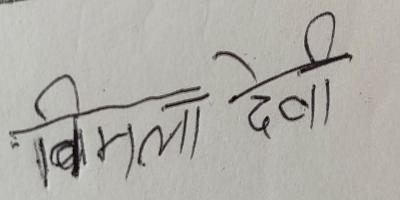 बिमला देवी